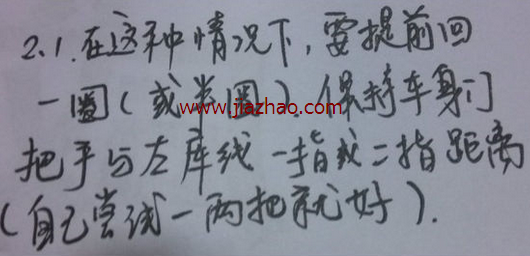 2.1.在这种情况下,要提前回
一圈(或半圈).保持车身门
www.jiazhao.com
把手与左库线一指或二指距离
(自己尝试一两把就好).